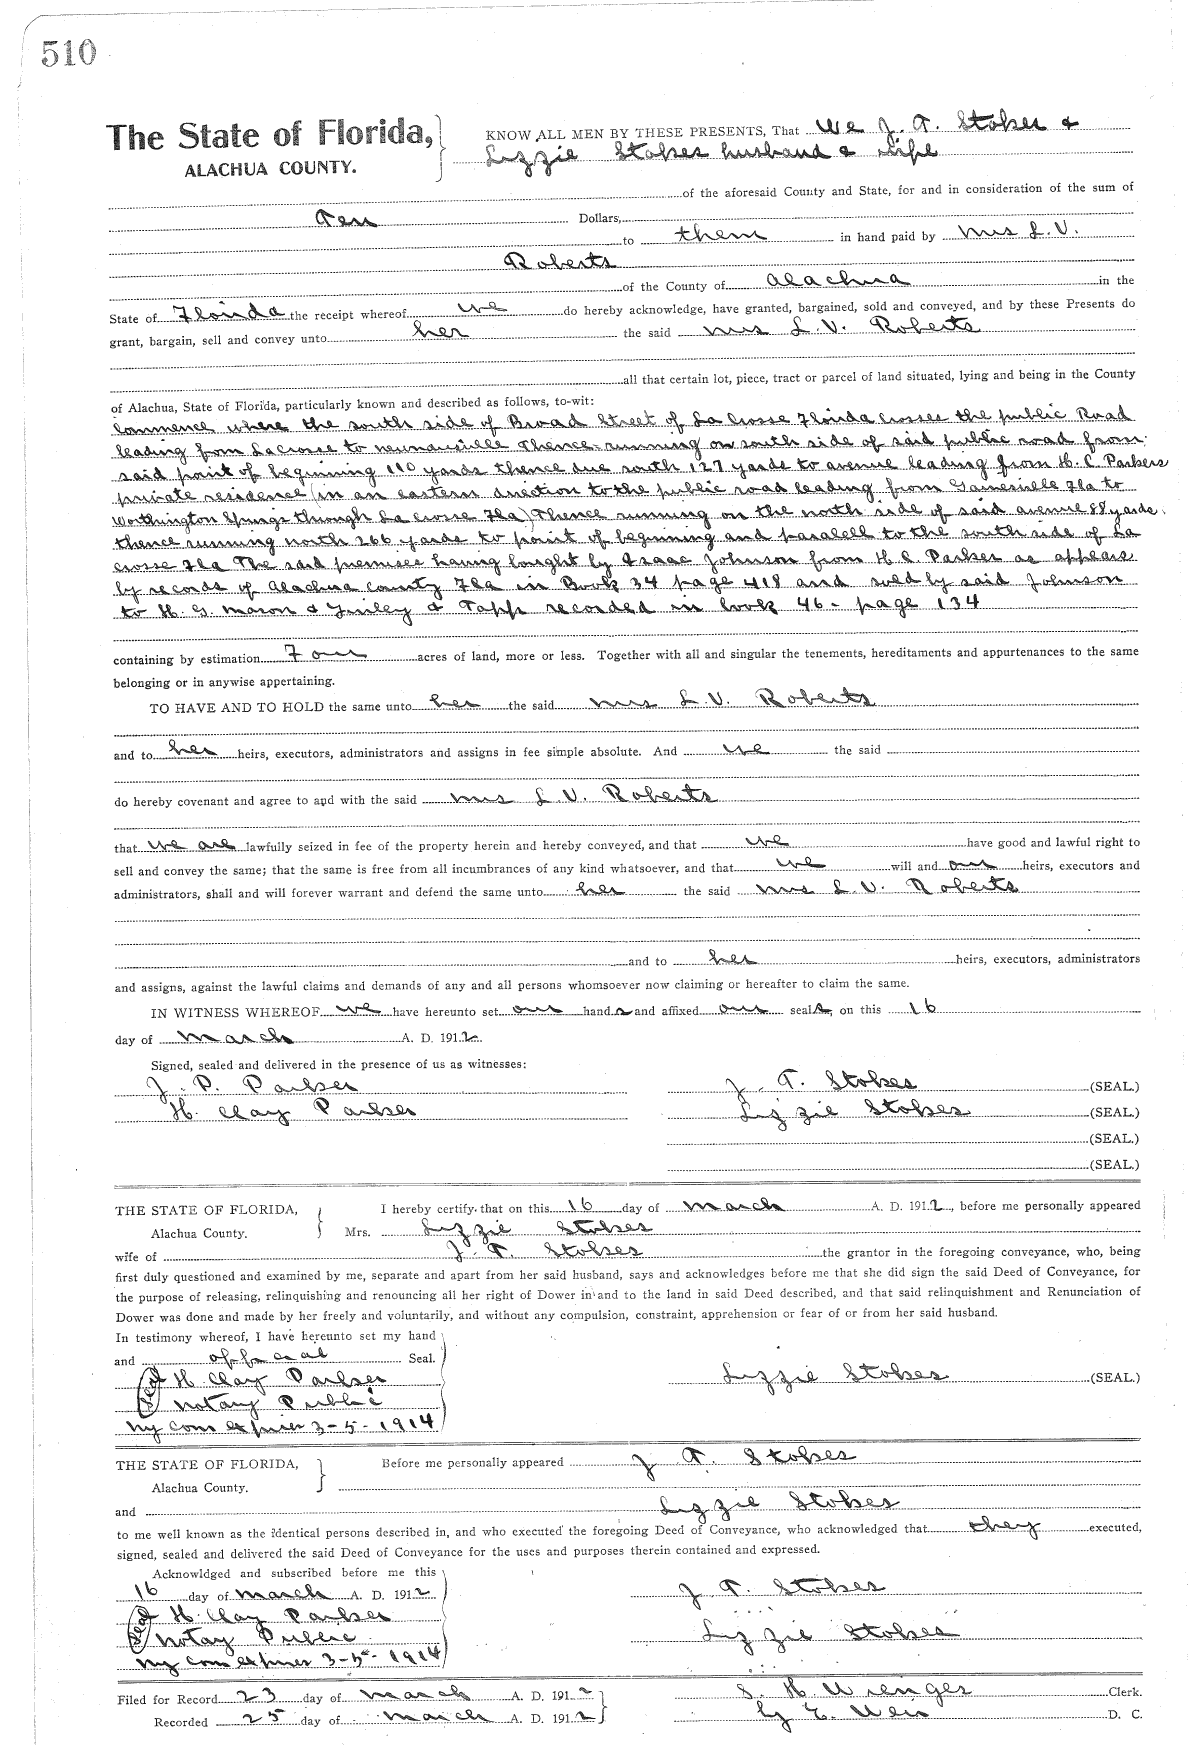 510
The State of Florida, KNOW ALL MEN BY THESE PRESENTS, That We J. T. Stokes &
ALACHUA COUNTY. Lizzie Stokes husband & wife
of the aforesaid County and State, for and in consideration of the sum of
Ten Dollars,
to them in hand paid by Mrs L. V.
Roberts
of the County of Alachua in the
State of Florida the receipt whereof we do hereby acknowledge, have granted, bargained, sold and conveyed, and by these Presents do
grant, bargain, sell and convey unto her the said Mrs L. V. Roberts
all that certain lot, piece, tract or parcel of land situated, lying and being in the County
of Alachua, State of Florida, particularly known and described as follows, to-wit:
Commence where the south side of Broad Street of La Crosse Florida crosses the public Road
leading from LaCrosse to Newnansville Thence running on south side of said public road from
said point of beginning 110 yards thence due south 127 yards to avenue leading from H. C. Parkers
private residence (in an eastern direction to the public road leading from Gainesville Fla to
Worthington Springs through La Crosse Fla) Thence running on the north side of said avenue 88 yards
thence running north 266 yards to point of beginning and paralell to the south side of La
Crosse Fla The said premises having bought by Isaac Johnson from H. C. Parker as appears
by records of Alachua County Fla in Book 34 page 418 and sold by said Johnson
to H. G. Mason & & Tapp recorded in book 46 - page 134
containing by estimation Four acres of land, more or less. Together with all and singular the tenements, hereditaments and appurtenances to the same
belonging or in anywise appertaining.
TO HAVE AND TO HOLD the same unto her the said Mrs L. V. Roberts
and to her heirs, executors, administrators and assigns in fee simple absolute. And we the said
do hereby covenant and agree to and with the said Mrs L V. Roberts
that we are lawfully seized in fee of the property herein and hereby conveyed, and that we have good and lawful right to
sell and convey the same; that the same is free from all incumbrances of any kind whatsoever, and that we will and our heirs, executors and
administrators, shall and will forever warrant and defend the same unto her the said Mrs L. V. Roberts
and to her heirs, executors, administrators
and assigns, against the lawful claims and demands of any and all persons whomsoever now claiming or hereafter to claim the same.
IN WITNESS WHEREOF we have hereunto set our hands and affixed our seals, on this 16
day of March A. D. 1912.
Signed, sealed and delivered in the presence of us as witnesses:
J. P. Parker J. T. Stokes (SEAL.)
H. Clay Parker Lizzie Stokes (SEAL.)
(SEAL.)
(SEAL.)
THE STATE OF FLORIDA, I hereby certify that on this 16 day of March A. D. 1912, before me personally appeared
Alachua County. Mrs. Lizzie Stokes
wife of J. T. Stokes the grantor in the foregoing conveyance, who, being
first duly questioned and examined by me, separate and apart from her said husband, says and acknowledges before me that she did sign the said Deed of Conveyance, for
the purpose of releasing, relinquishing and renouncing all her right of Dower in and to the land in said Deed described, and that said relinquishment and Renunciation of
Dower was done and made by her freely and voluntarily, and without any compulsion, constraint, apprehension or fear of or from her said husband.
In testimony whereof, I have hereunto set my hand
and official Seal.
Seal H. Clay Parker Lizzie Stokes (SEAL.)
Notary Public
My Com expires 3-5-1914
THE STATE OF FLORIDA, Before me personally appeared J. T. Stokes
Alachua County.
and Lizzie Stokes
to me well known as the identical persons described in, and who executed the foregoing Deed of Conveyance, who acknowledged that they executed,
signed, sealed and delivered the said Deed of Conveyance for the uses and purposes therein contained and expressed.
Acknowldged and subscribed before me this
16 day of March A. D. 1912 J. T. Stokes
Seal H. Clay Parker
Notay Public Lizzie Stokes
My Com expires 3-5-1914
Filed for Record 23 day of March A. D. 1912 S. H. Wienges Clerk.
Recorded 25 day of March A. D. 1912 D. C.